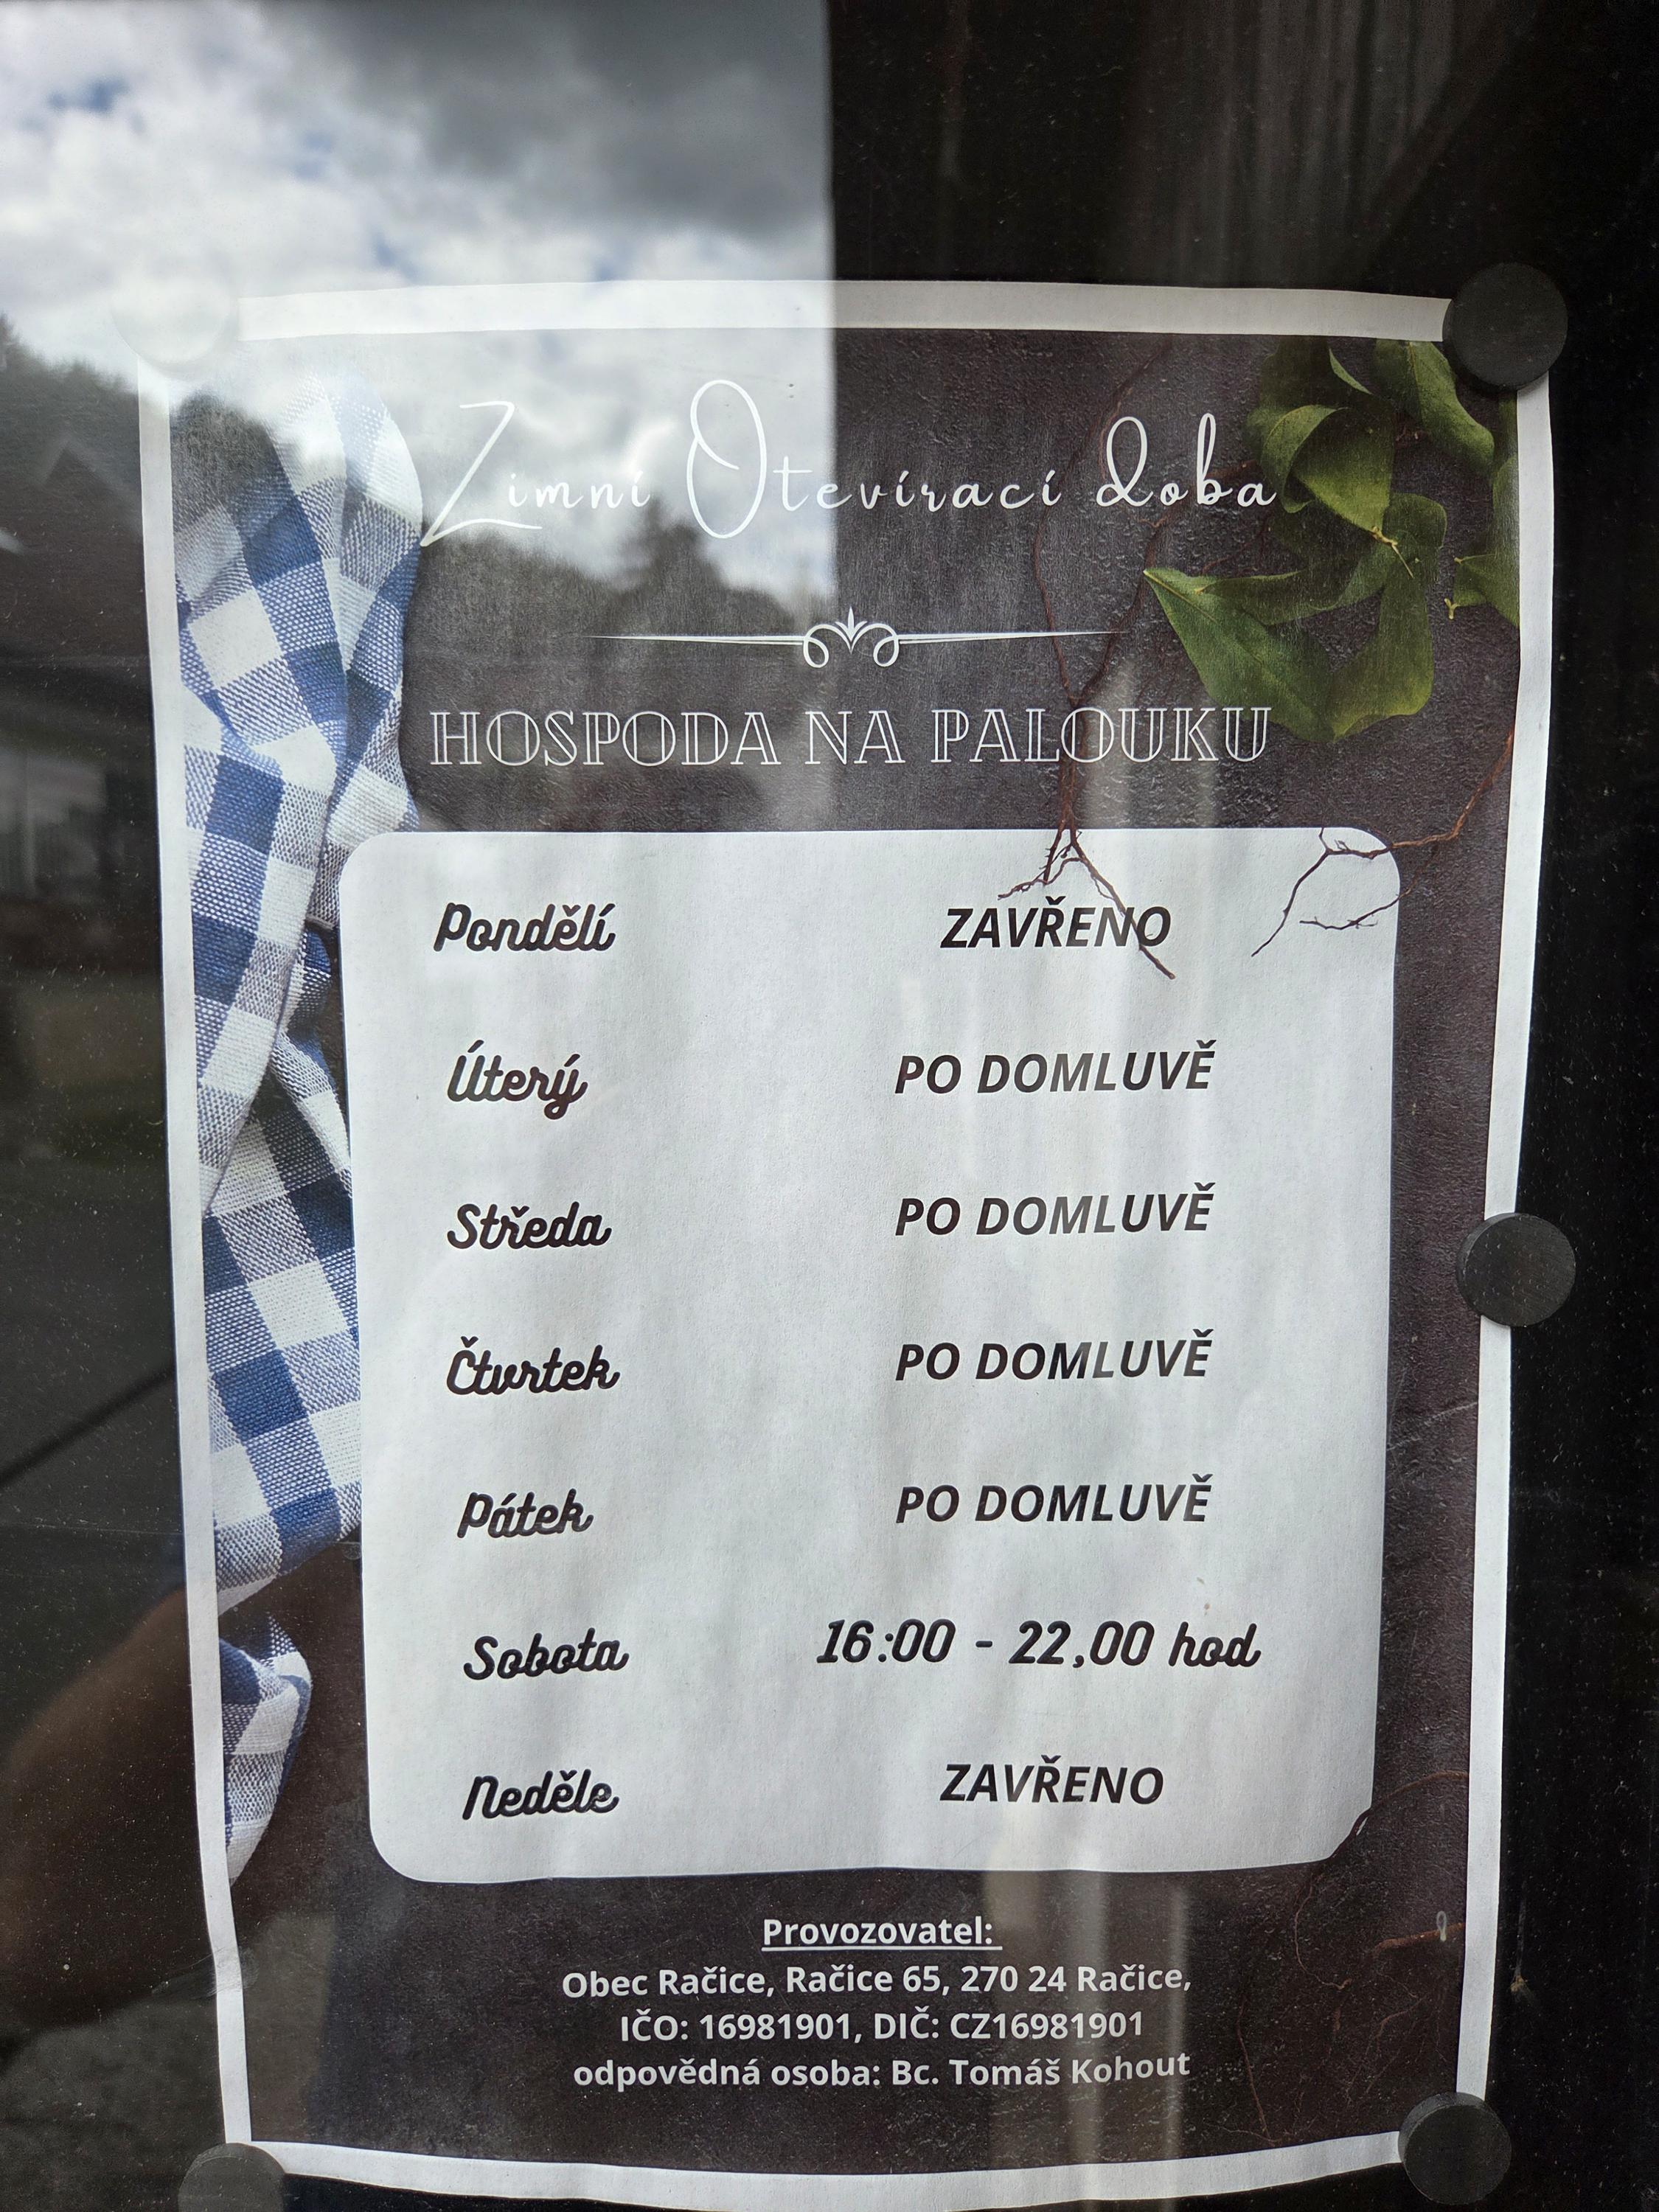 Zimní Otevírací doba
HOSPODA NA PALOUKU
Pondělí ZAVŘENO
Úterý PO DOMLUVĚ
Středa PO DOMLUVĚ
Čtvrtek PO DOMLUVĚ
Pátek PO DOMLUVĚ
Sobota 16:00 - 22,00 hod
Neděle ZAVŘENO
Provozovatel:
Obec Račice, Račice 65, 270 24 Račice,
IČO: 16981901, DIČ: CZ16981901
odpovědná osoba: Bc. Tomáš Kohout